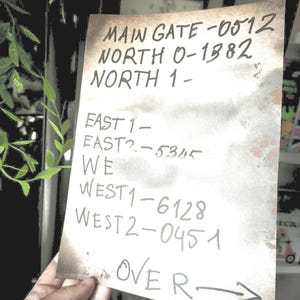 MAIN GATE - 0512
NORTH 0 - 1382
NORTH 1 -
EAST 1 -
EAST 2 - 5345
WE
WEST 1 - 6128
WEST 2 - 0451
OVER →